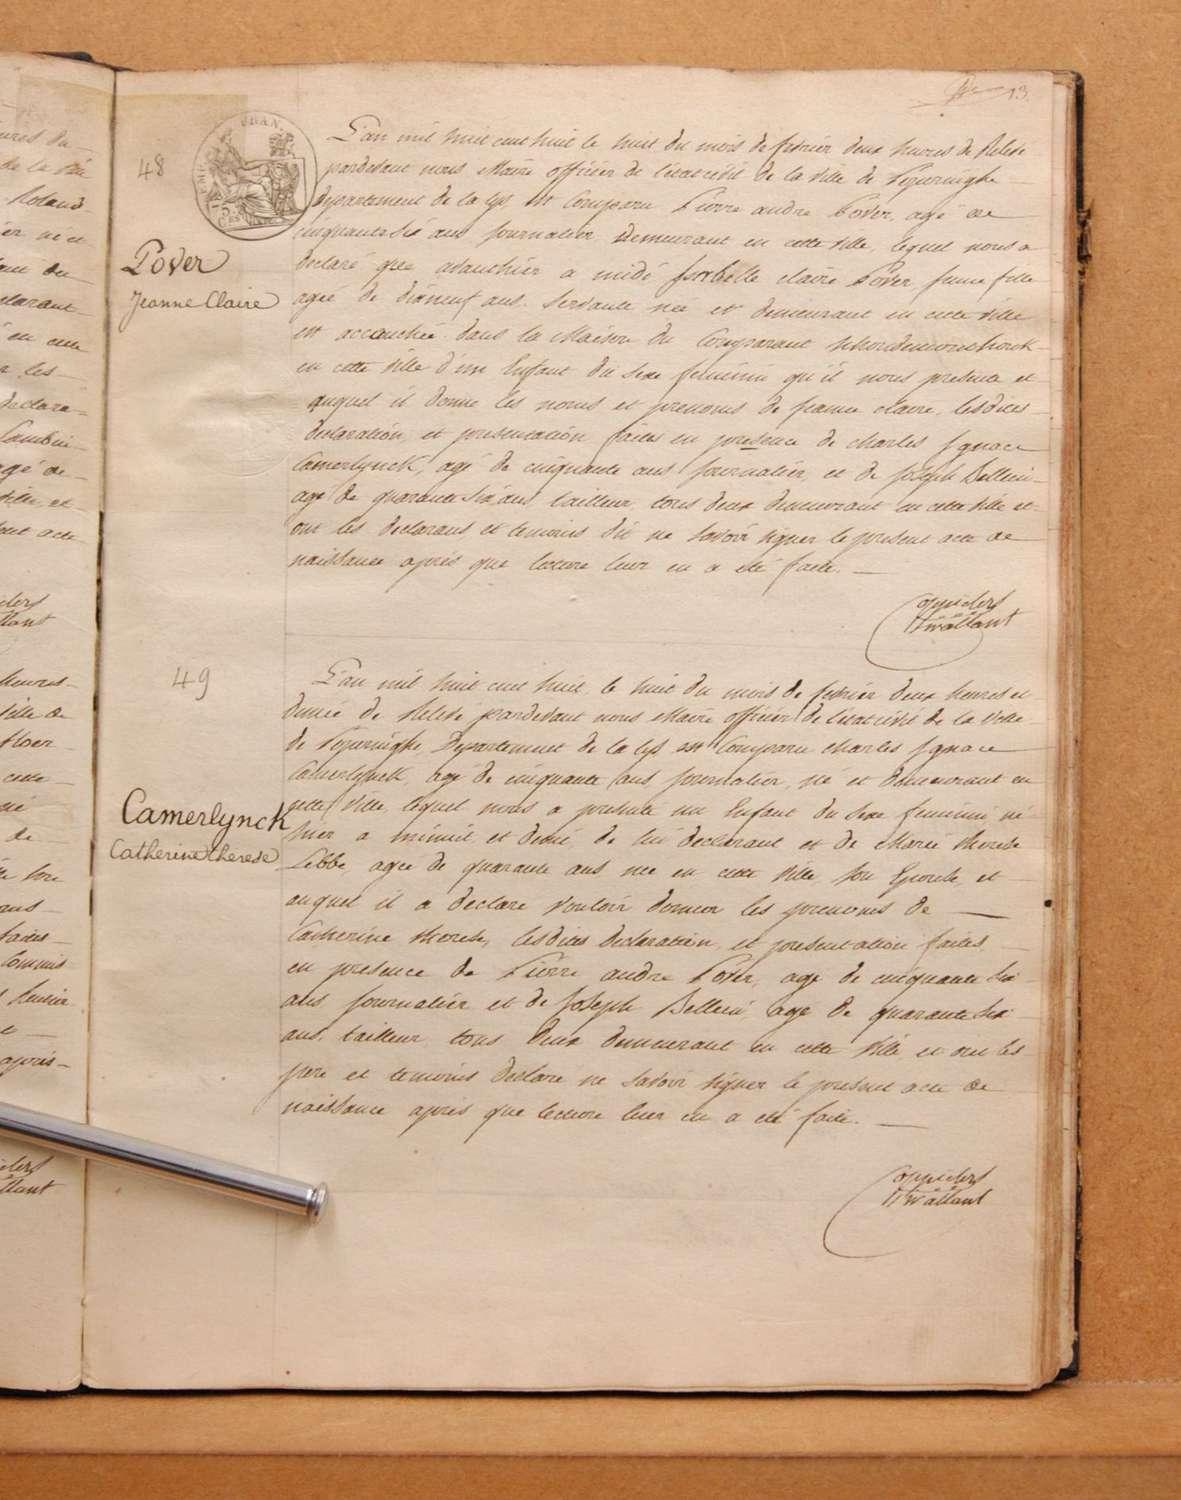 13
48
Pover
Jeanne Claire
L'an mil huit cent huit le huit du mois de fevrier deux heures de Relevé
pardevant nous Maire officier de l'etat civil de la ville de Poperinghe
departement de la Lys est Comparu Pierre andre Pover, agé de
cinquante six ans journalier demeurant en cette ville, lequel nous a
declaré que avanthier a midi Isabelle claire Pover, jeune fille
agée de dixneuf ans, servante née et demeurant en cette ville
est accouchée dans la Maison du Comparant
en cette ville d'un Enfant du sexe feminin qu'il nous presente et
auquel il donne les noms et prenoms de jeanne claire, lesdites
declaration, et presentation faites en presence de charles Ignace
Camerlynck, agé de cinquante ans journalier, et de Joseph Bellein
agé de quarante six ans tailleur, tous deux demeurant en cette ville et
ont les declarans et temoins dit ne savoir signer le present acte de
naissance après que lecture leur en a été faite.
49
Camerlynck
Catherine therese
L'an mil huit cent huit, le huit du mois de fevrier deux heures et
demie de Relevé pardevant nous Maire officier de l'etat civil de la ville
de Poperinghe Departement de la Lys est Comparu charles Ignace
Camerlynck, agé de cinquante ans journalier, né et demeurant en
cette ville, lequel nous a presenté un Enfant du sexe feminin, né
hier a minuit et demie, de lui declarant et de Marie therese
Lebbe, agée de quarante ans née en cette ville, son Epouse, et
auquel il a declaré vouloir donner les prenoms de
Catherine therese, lesdites declaration, et presentation faites
en presence de Pierre andre Pover, agé de cinquante six
ans journalier et de Joseph Bellein agé de quarante six
ans, tailleur, tous deux demeurant en cette ville, et ont les
pere et temoins declaré ne savoir signer le present acte de
naissance après que lecture leur en a été faite.